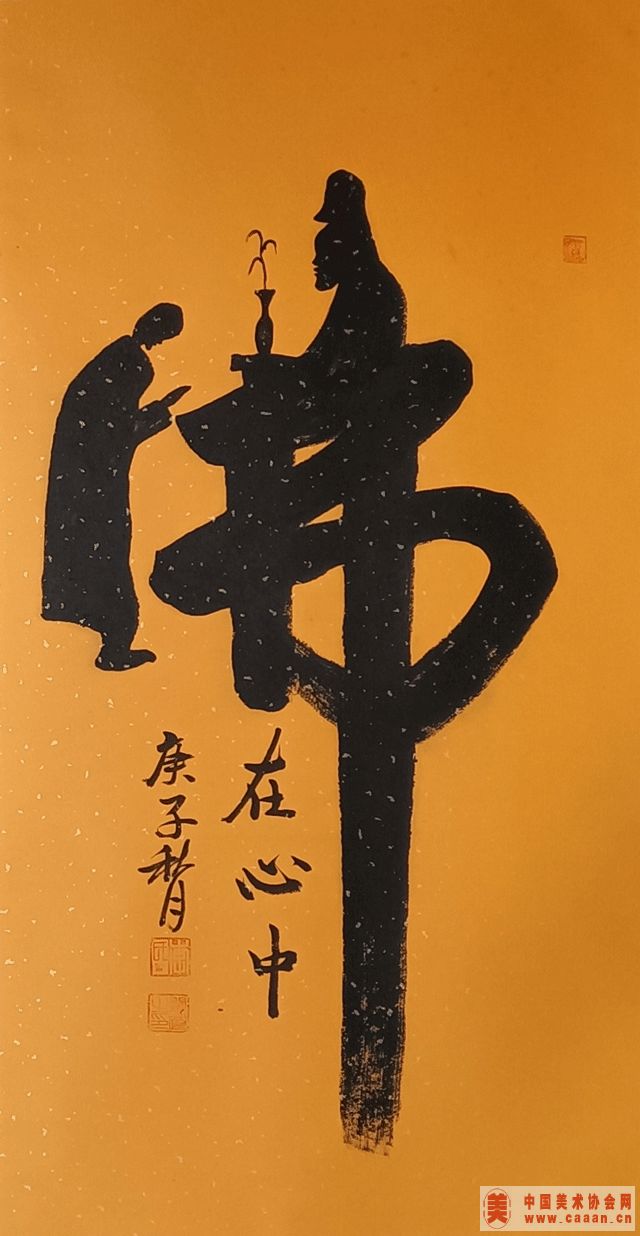 佛
在心中
庚子秋月
中国美术协会网
www.caaan.cn